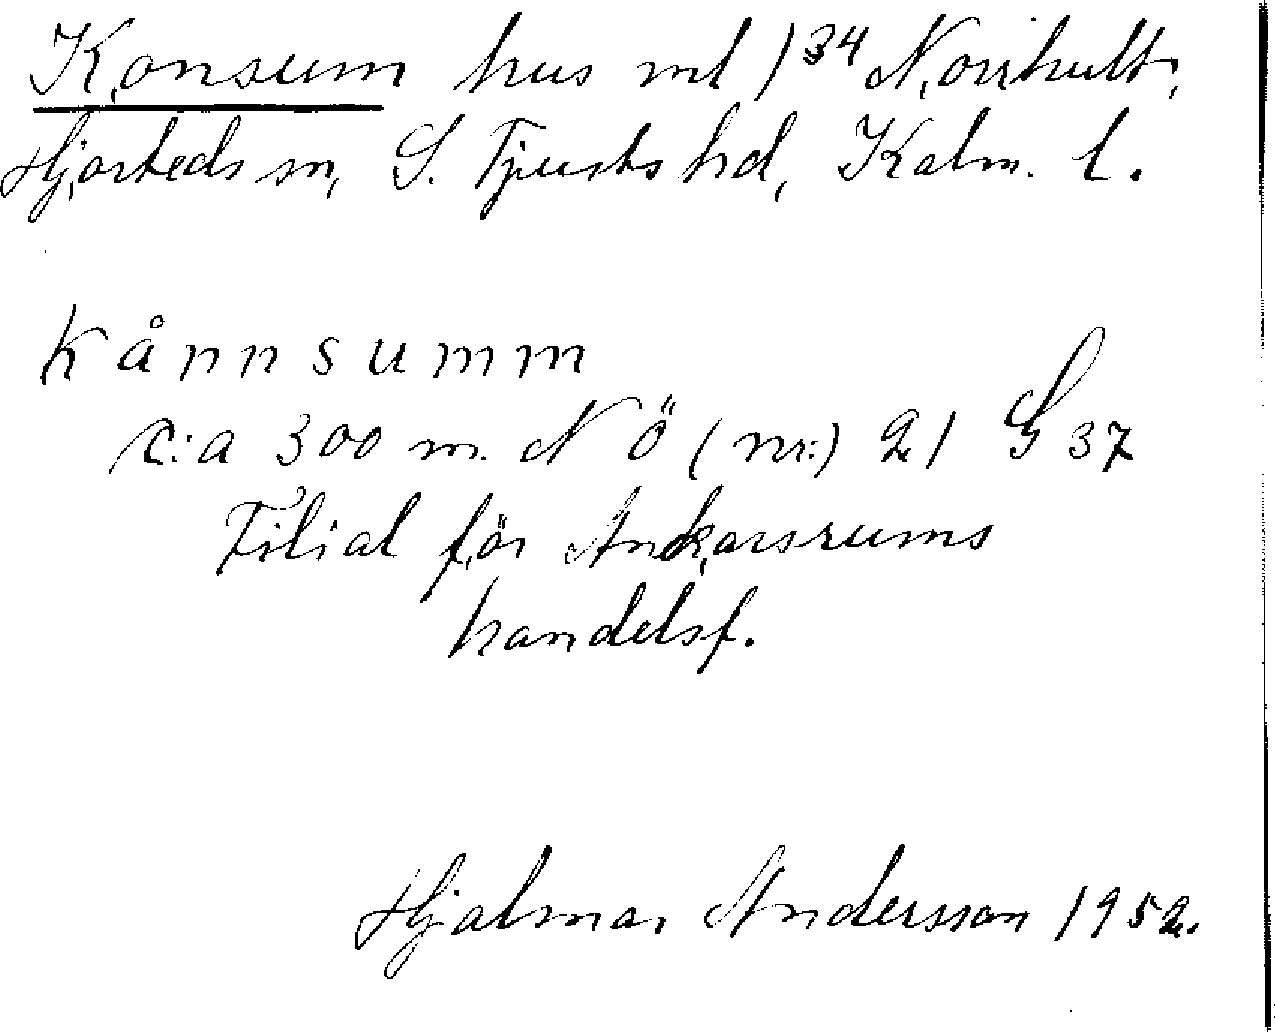 Konsum hus rnl 1³⁴ Norrhult,
Hjorteds sn, S. Tjusts hd, Kalm. l.
kånnsumm
c:a 300 m. NÖ (nr:) 21 G 37
Filial för Ankarsrums
handelsf.
Hjalmar Andersson 1952.